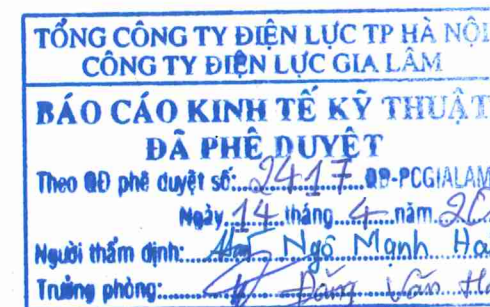 TỔNG CÔNG TY ĐIỆN LỰC TP HÀ NỘI
CÔNG TY ĐIỆN LỰC GIA LÂM
BÁO CÁO KINH TẾ KỸ THUẬT
ĐÃ PHÊ DUYỆT
Theo QĐ phê duyệt số: 2417 QĐ-PCGIALAM
Ngày 14 tháng 4 năm 20
Người thẩm định: Ngô Mạnh Hải
Trưởng phòng: Đặng Văn